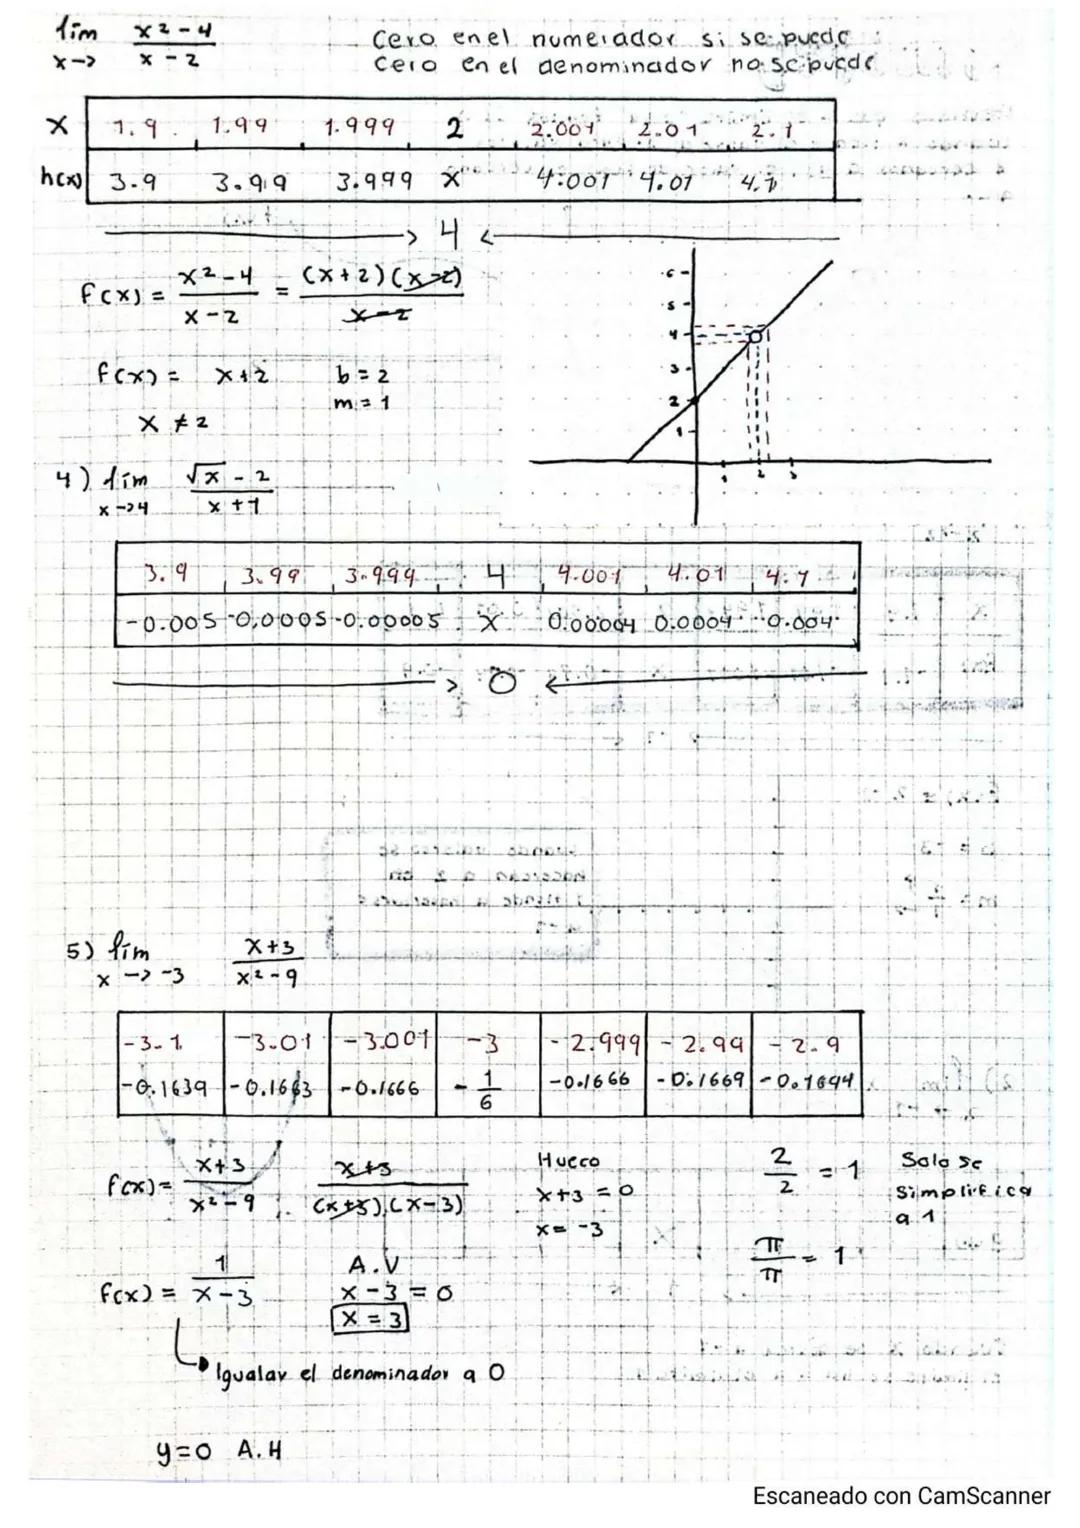 lim x²-4
x-> x-2
Cero en el numerador si se puede
Cero en el denominador no se puede
x 1.9 1.99 1.999 2 2.001 2.01 2.1
h(x) 3.9 3.99 3.999 x 4.001 4.01 4.1
-> 4 <-
f(x) = x²-4 / x-2 = (x+2)(x-2) / x-2
f(x) = x+2 b=2
m=1
x ≠ 2
6
5
4
3
2
1
1 2 3
4) lim √x - 2
x->4 x+1
3.9 3.99 3.999 4 4.001 4.01 4.1
-0.005 -0.0005 -0.00005 x 0.00004 0.0004 0.004
-> 0 <-
5) lim x+3
x -> -3 x²-9
-3.1 -3.01 -3.001 -3 -2.999 -2.99 -2.9
-0.1639 -0.1663 -0.1666 -1/6 -0.1666 -0.1669 -0.1694
f(x)= x+3 / x²-9 x+3 / (x+3)(x-3)
Hueco
x+3=0
x=-3
2/2 = 1
π/π = 1
Solo se
simplifica
a 1
f(x) = 1 / x-3
A.V
x-3=0
x=3
Igualar el denominador a 0
y=0 A.H
Escaneado con CamScanner